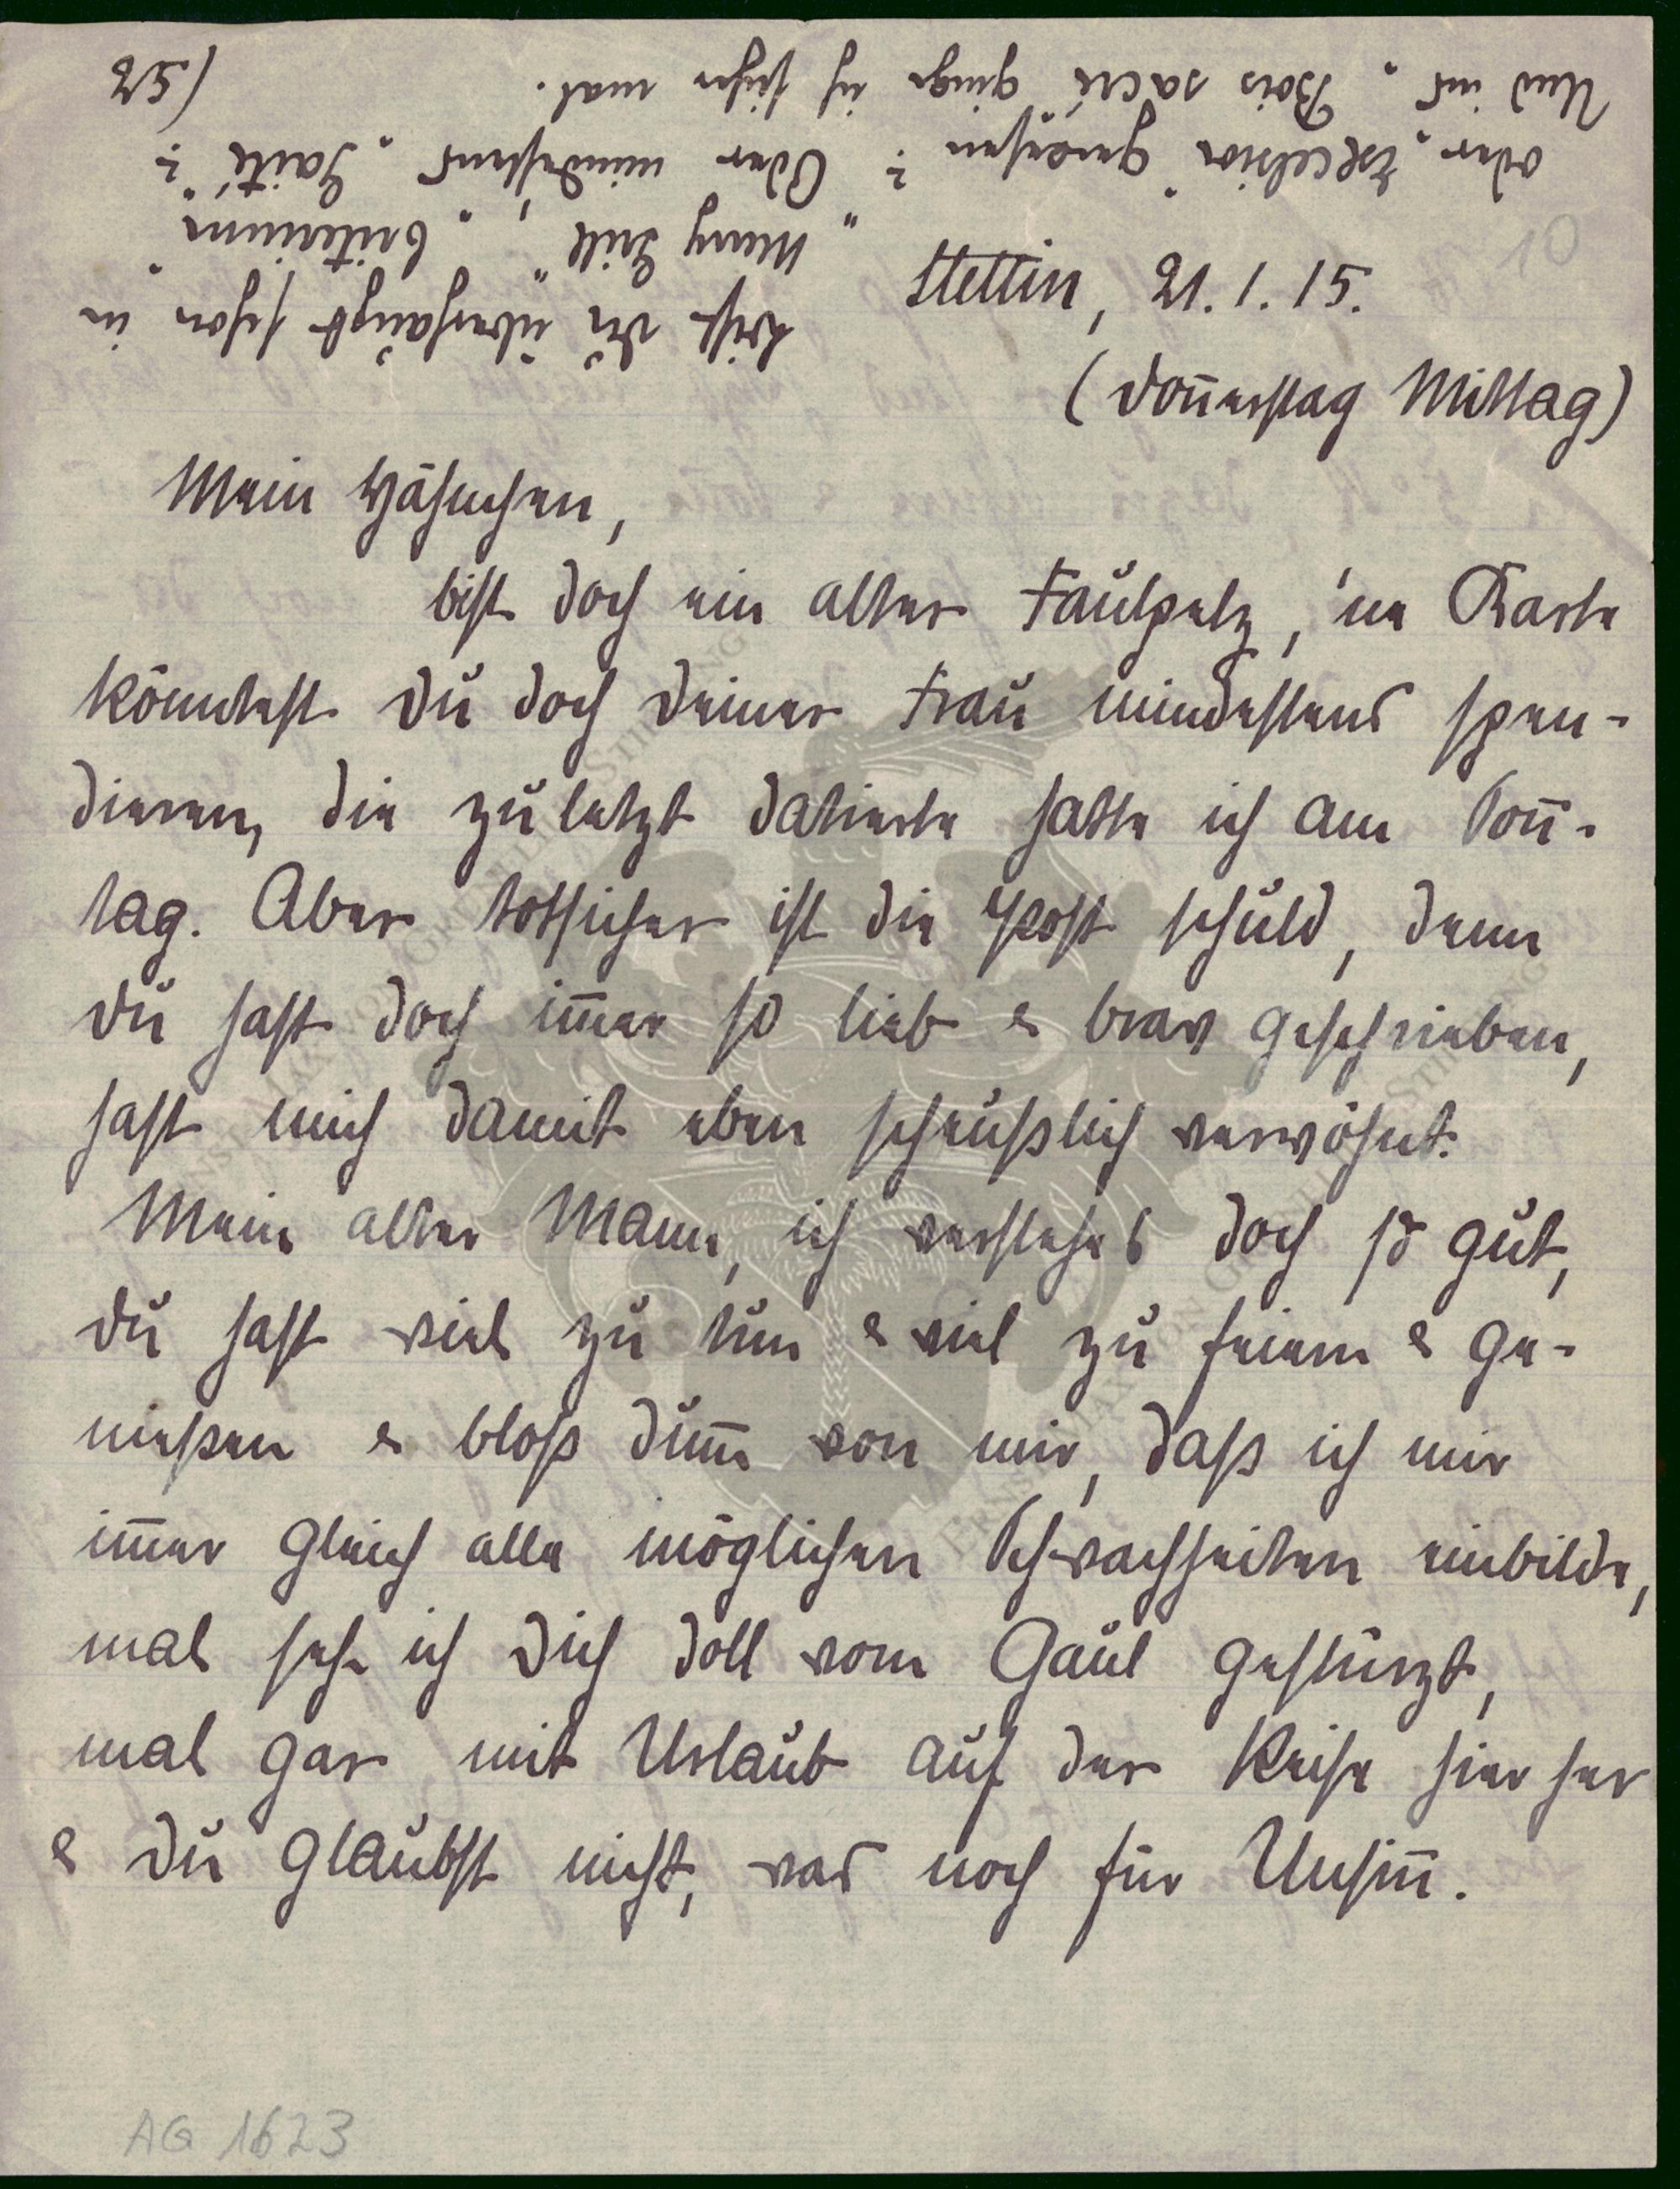 Stettin, 21.1.15.
(Donnerstag Mittag)
Mein Häschen,
bist doch ein alter Faulpelz, 'ne Karte
könntest Du doch Deiner Frau mindestens spen-
dieren, die zuletzt datierte hatte ich am Sonn-
tag. Aber totsicher ist die Post schuld, denn
Du hast doch immer so lieb & brav geschrieben,
hast mich damit eben scheußlich verwöhnt.
Mein alter Mann, ich verstehe's doch so gut,
Du hast viel zu tun & viel zu feiern & ge-
nießen & bloß dumm von mir, daß ich mir
immer gleich alle möglichen Schwachheiten einbilde,
mal seh ich Dich doll vom Gaul gestürzt,
mal gar mit Urlaub auf der Reise hier her
& Du glaubst nicht, was noch für Unsinn.
bist Du überhaupt schon in
"Merry Grill", "Criterium"
oder "Excelsior" gewesen? Oder mindestens "Gaité"?
Und ins "Bois sacré" ginge ich sicher mal.
10
AG 1623